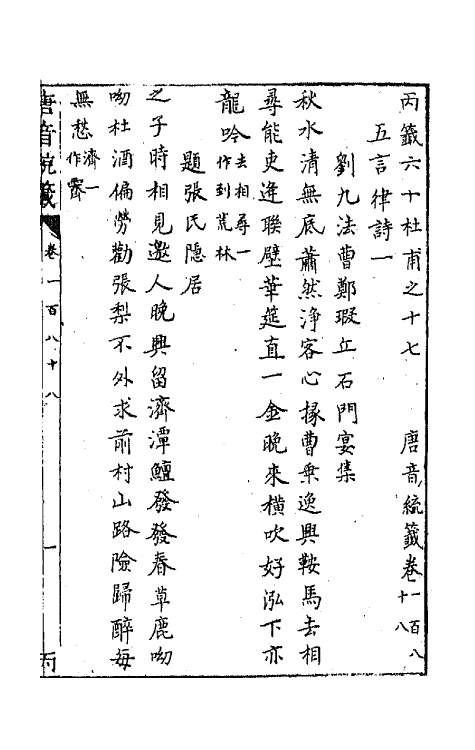 丙籤六十杜甫之十七　唐音統籤卷一百八十八
五言律詩一
劉九法曹鄭瑕丘石門宴集
秋水清無底蕭然浄客心掾曹乗逸興鞍馬去相
尋能吏逢聯璧華筵直一金晩來横吹好泓下亦
龍吟去相尋一作到荒林
題張氏隠居
之子時相見邀人晩興留濟潭鱣發發春草鹿呦
呦杜酒偏勞勸張梨不外求前村山路險歸醉每
無愁濟一作霽
唐音統籤
卷一百八十八
一
丙